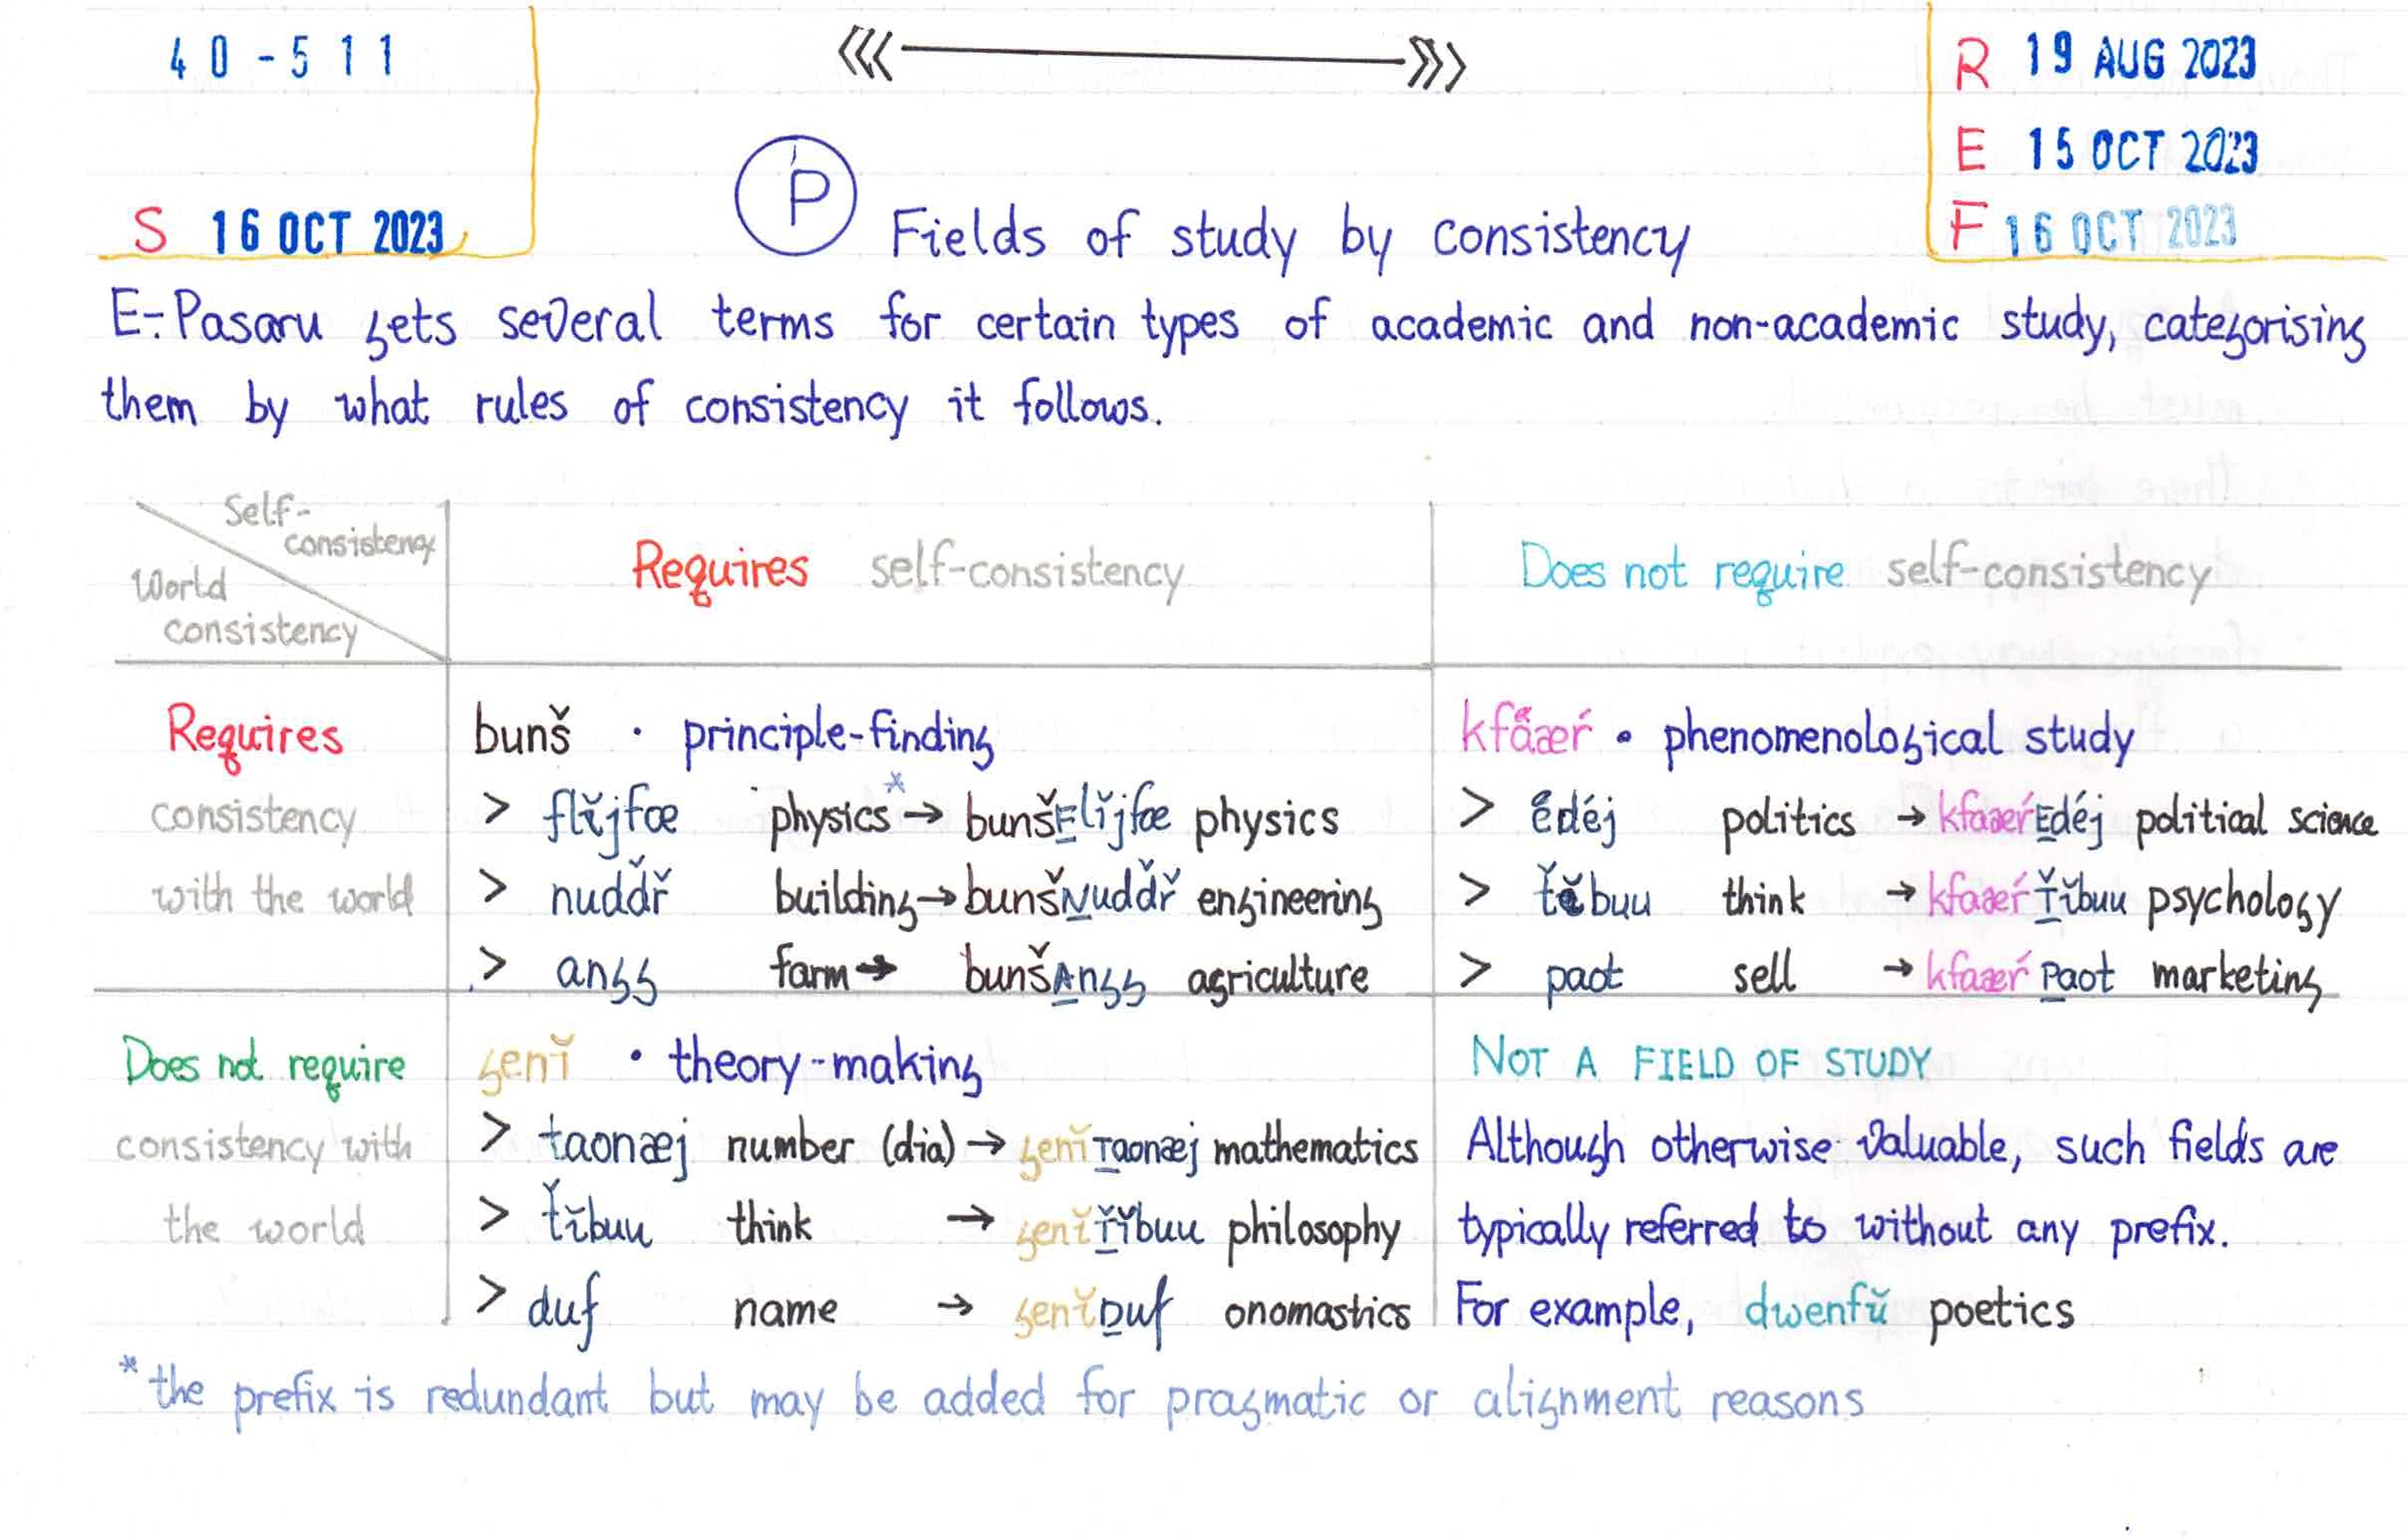 40-511
S 16 OCT 2023
R 19 AUG 2023
E 15 OCT 2023
F 16 OCT 2023
P Fields of study by consistency
E-Pasaru gets several terms for certain types of academic and non-academic study, categorising
them by what rules of consistency it follows.
Self-consistency
World consistency
Requires self-consistency
Does not require self-consistency
Requires consistency with the world
bunš · principle-finding
> flǐjfœ physics* → bunšFlǐjfœ physics
> nuddř building → bunšNuddř engineering
> angg farm → bunšAngg agriculture
kfáæŕ · phenomenological study
> édéj politics → kfaæŕEdéj political science
> buu think → kfaæŕŤǐbuu psychology
> paot sell → kfaæŕPaot marketing
Does not require consistency with the world
genǐ · theory-making
> taonæj number (dia) → genǐTaonæj mathematics
> ťǐbuu think → genǐŤǐbuu philosophy
> duf name → genǐDuf onomastics
NOT A FIELD OF STUDY
Although otherwise valuable, such fields are
typically referred to without any prefix.
For example, dwenfǔ poetics
*the prefix is redundant but may be added for pragmatic or alignment reasons